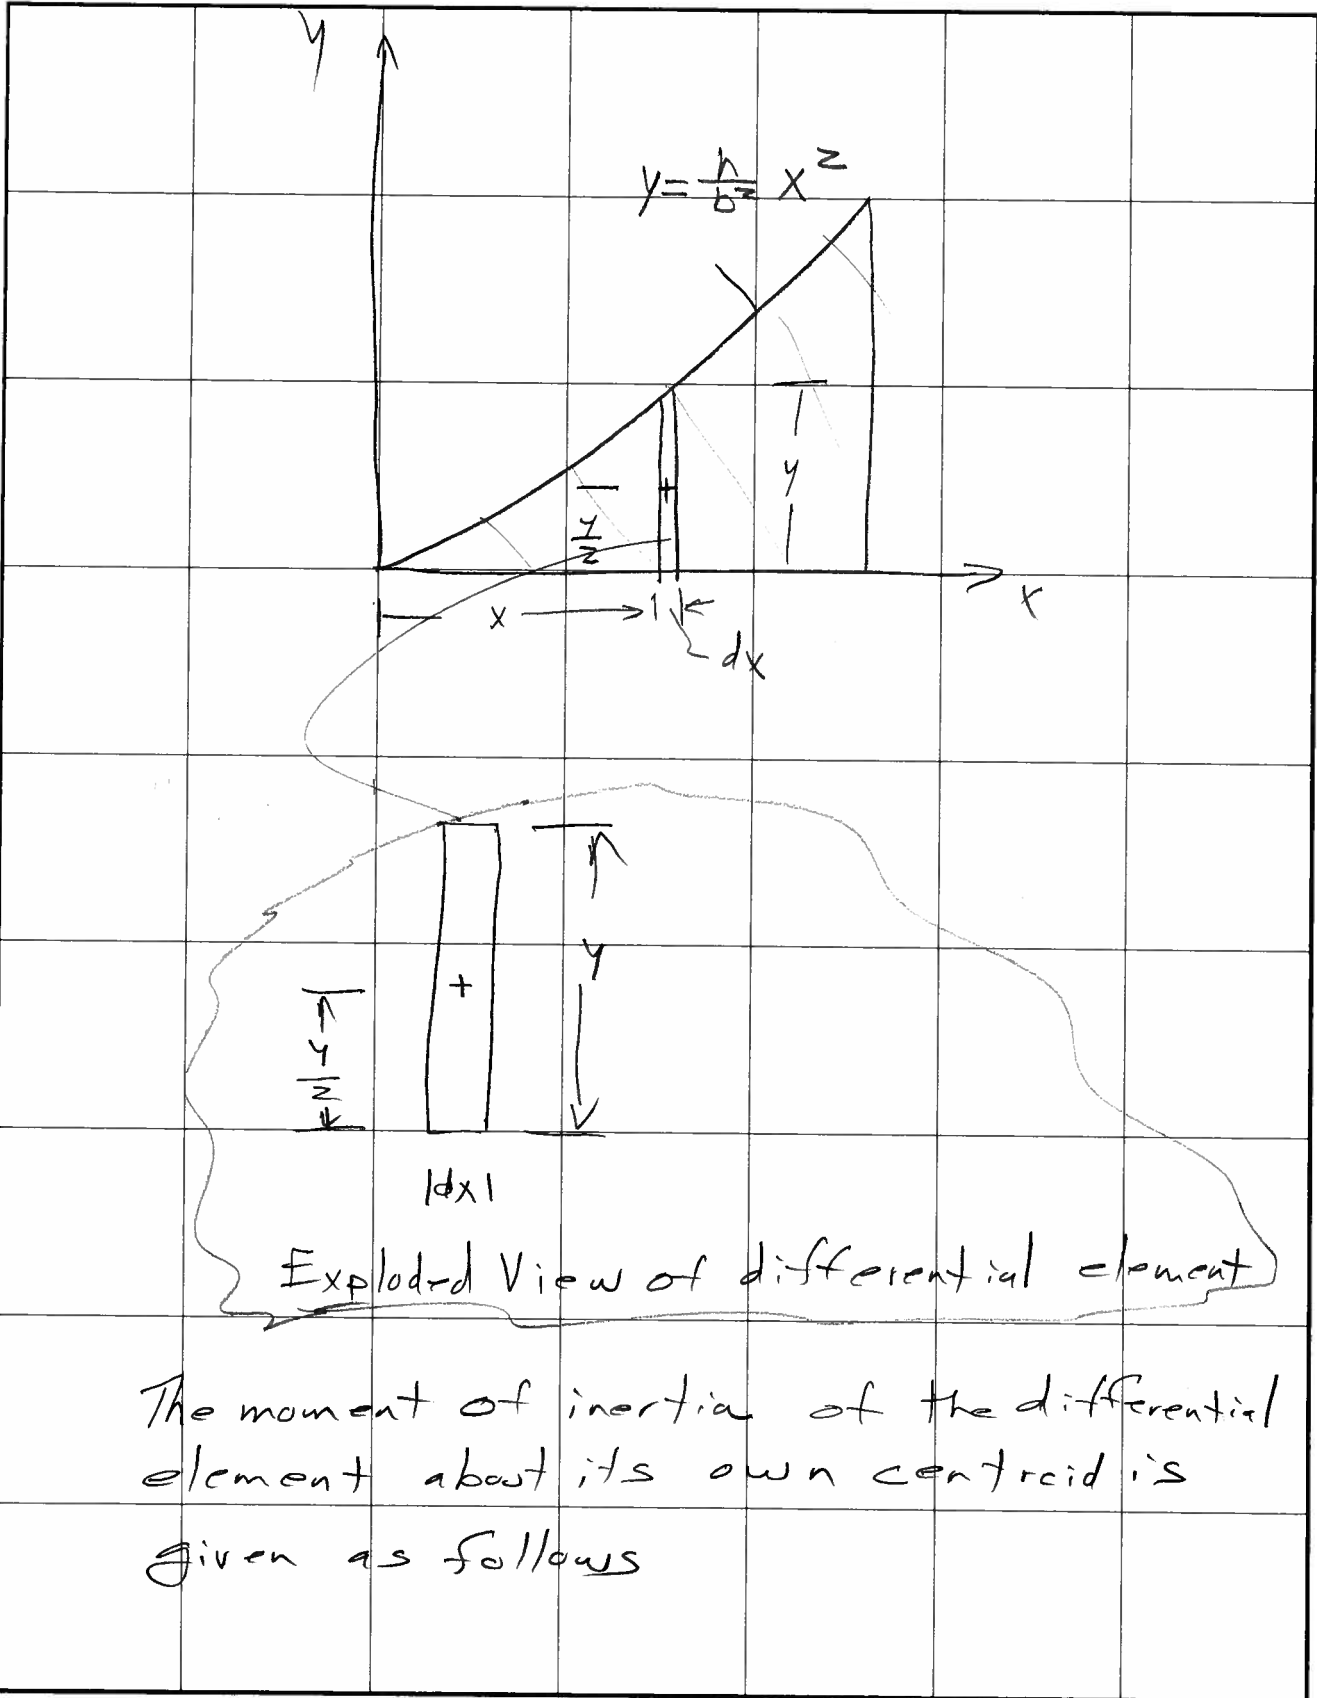 y
y = h/b² x²
y
y/2
x
x
dx
y
y/2
|dx|
Exploded View of differential element
The moment of inertia of the differential
element about its own centroid is
given as follows